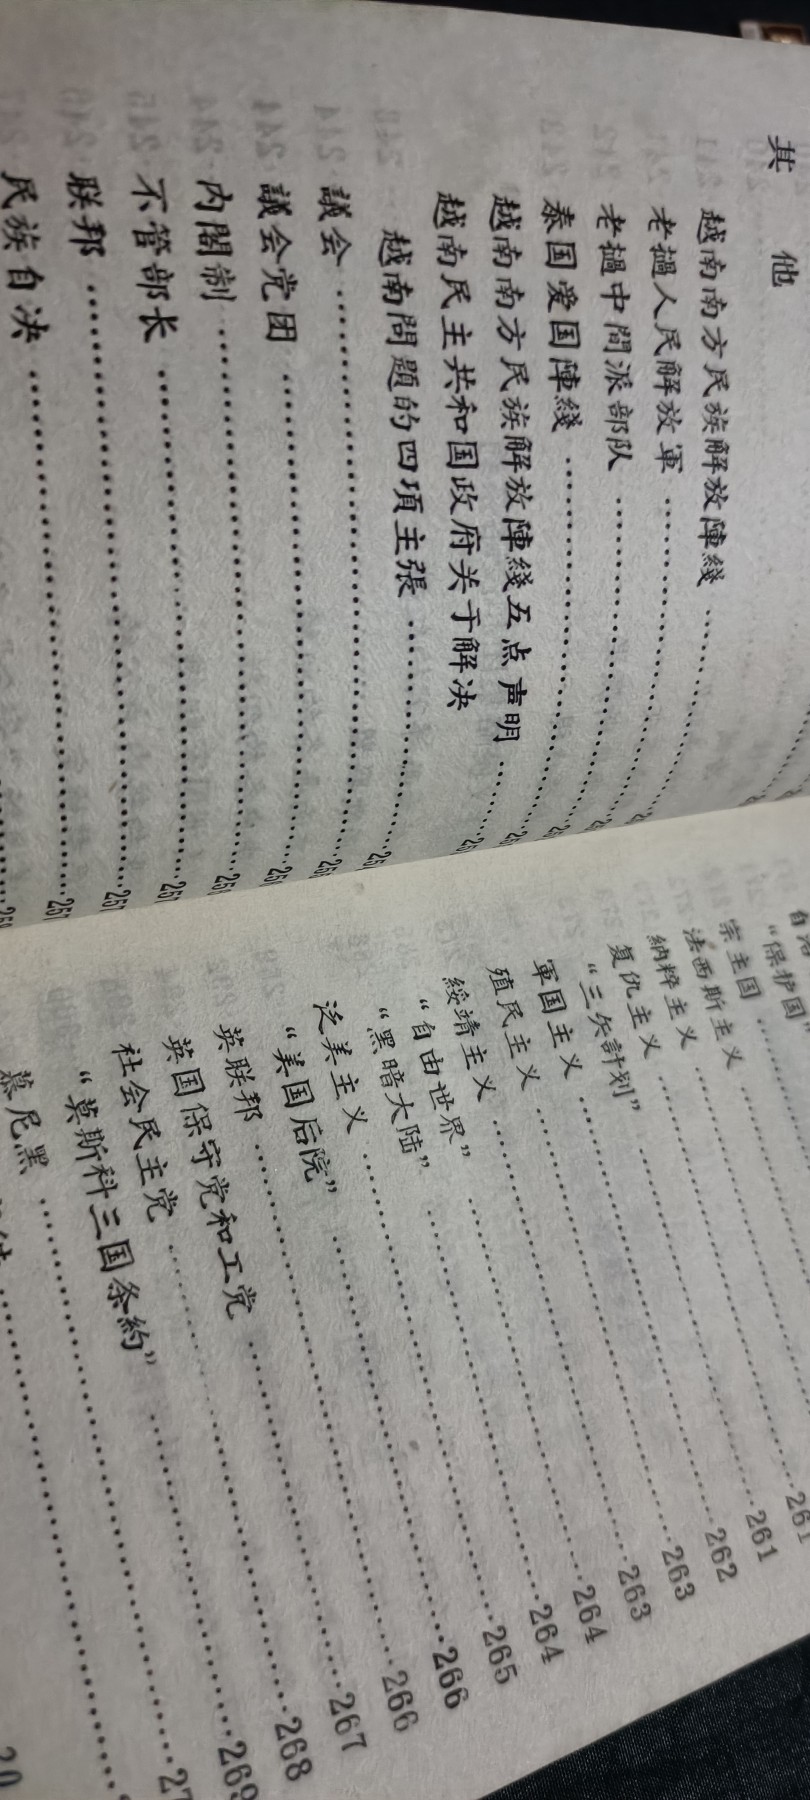 其 他
越南南方民族解放陣綫
老撾人民解放軍
老撾中間派部队
泰国爱国陣綫
越南南方民族解放陣綫五点声明
越南民主共和国政府关于解决
越南問題的四項主張
議会
議会党团
内閣制
不管部长
联邦
民族自决
“保护国” 261
宗主国 261
法西斯主义 262
納粹主义 263
复仇主义 263
“三矢計划” 264
軍国主义 264
殖民主义 265
綏靖主义 266
“自由世界” 266
“黑暗大陆” 267
泛美主义 268
“美国后院” 269
英联邦
英国保守党和工党
社会民主党
“莫斯科三国条約”
慕尼黑